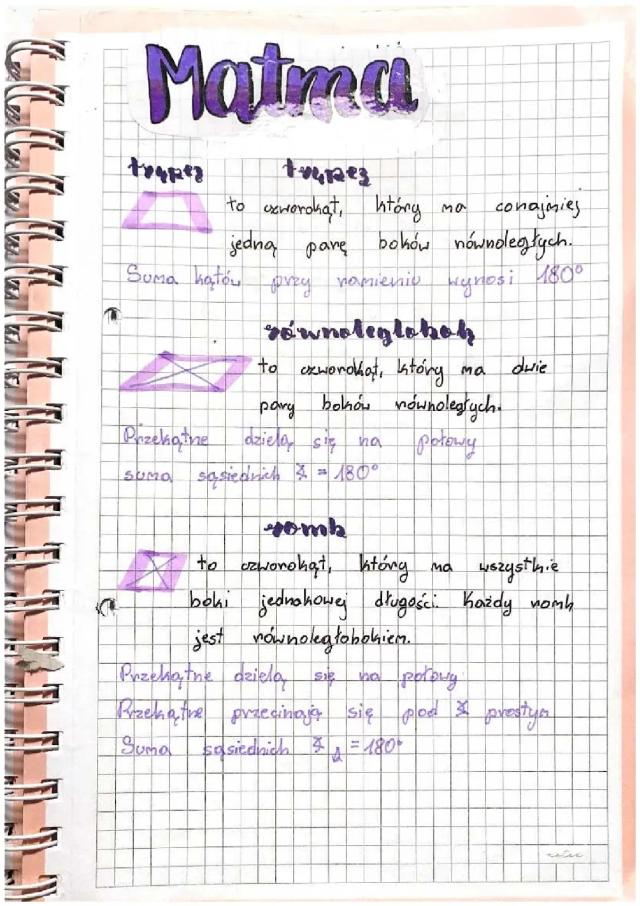 Matma
trapez trapez
to czworokąt, który ma conajmiej
jedną parę boków równoległych.
Suma kątów przy ramieniu wynosi 180°
równoległobok
to czworokąt, który ma dwie
pary boków równoległych.
Przekątne dzielą się na połowy
suma sąsiednich ∡ = 180°
romb
to czworokąt, który ma wszystkie
boki jednakowej długości. Każdy romb
jest równoległobokiem.
Przekątne dzielą się na połowy
Przekątne przecinają się pod ∡ prostym
Suma sąsiednich ∡ = 180°